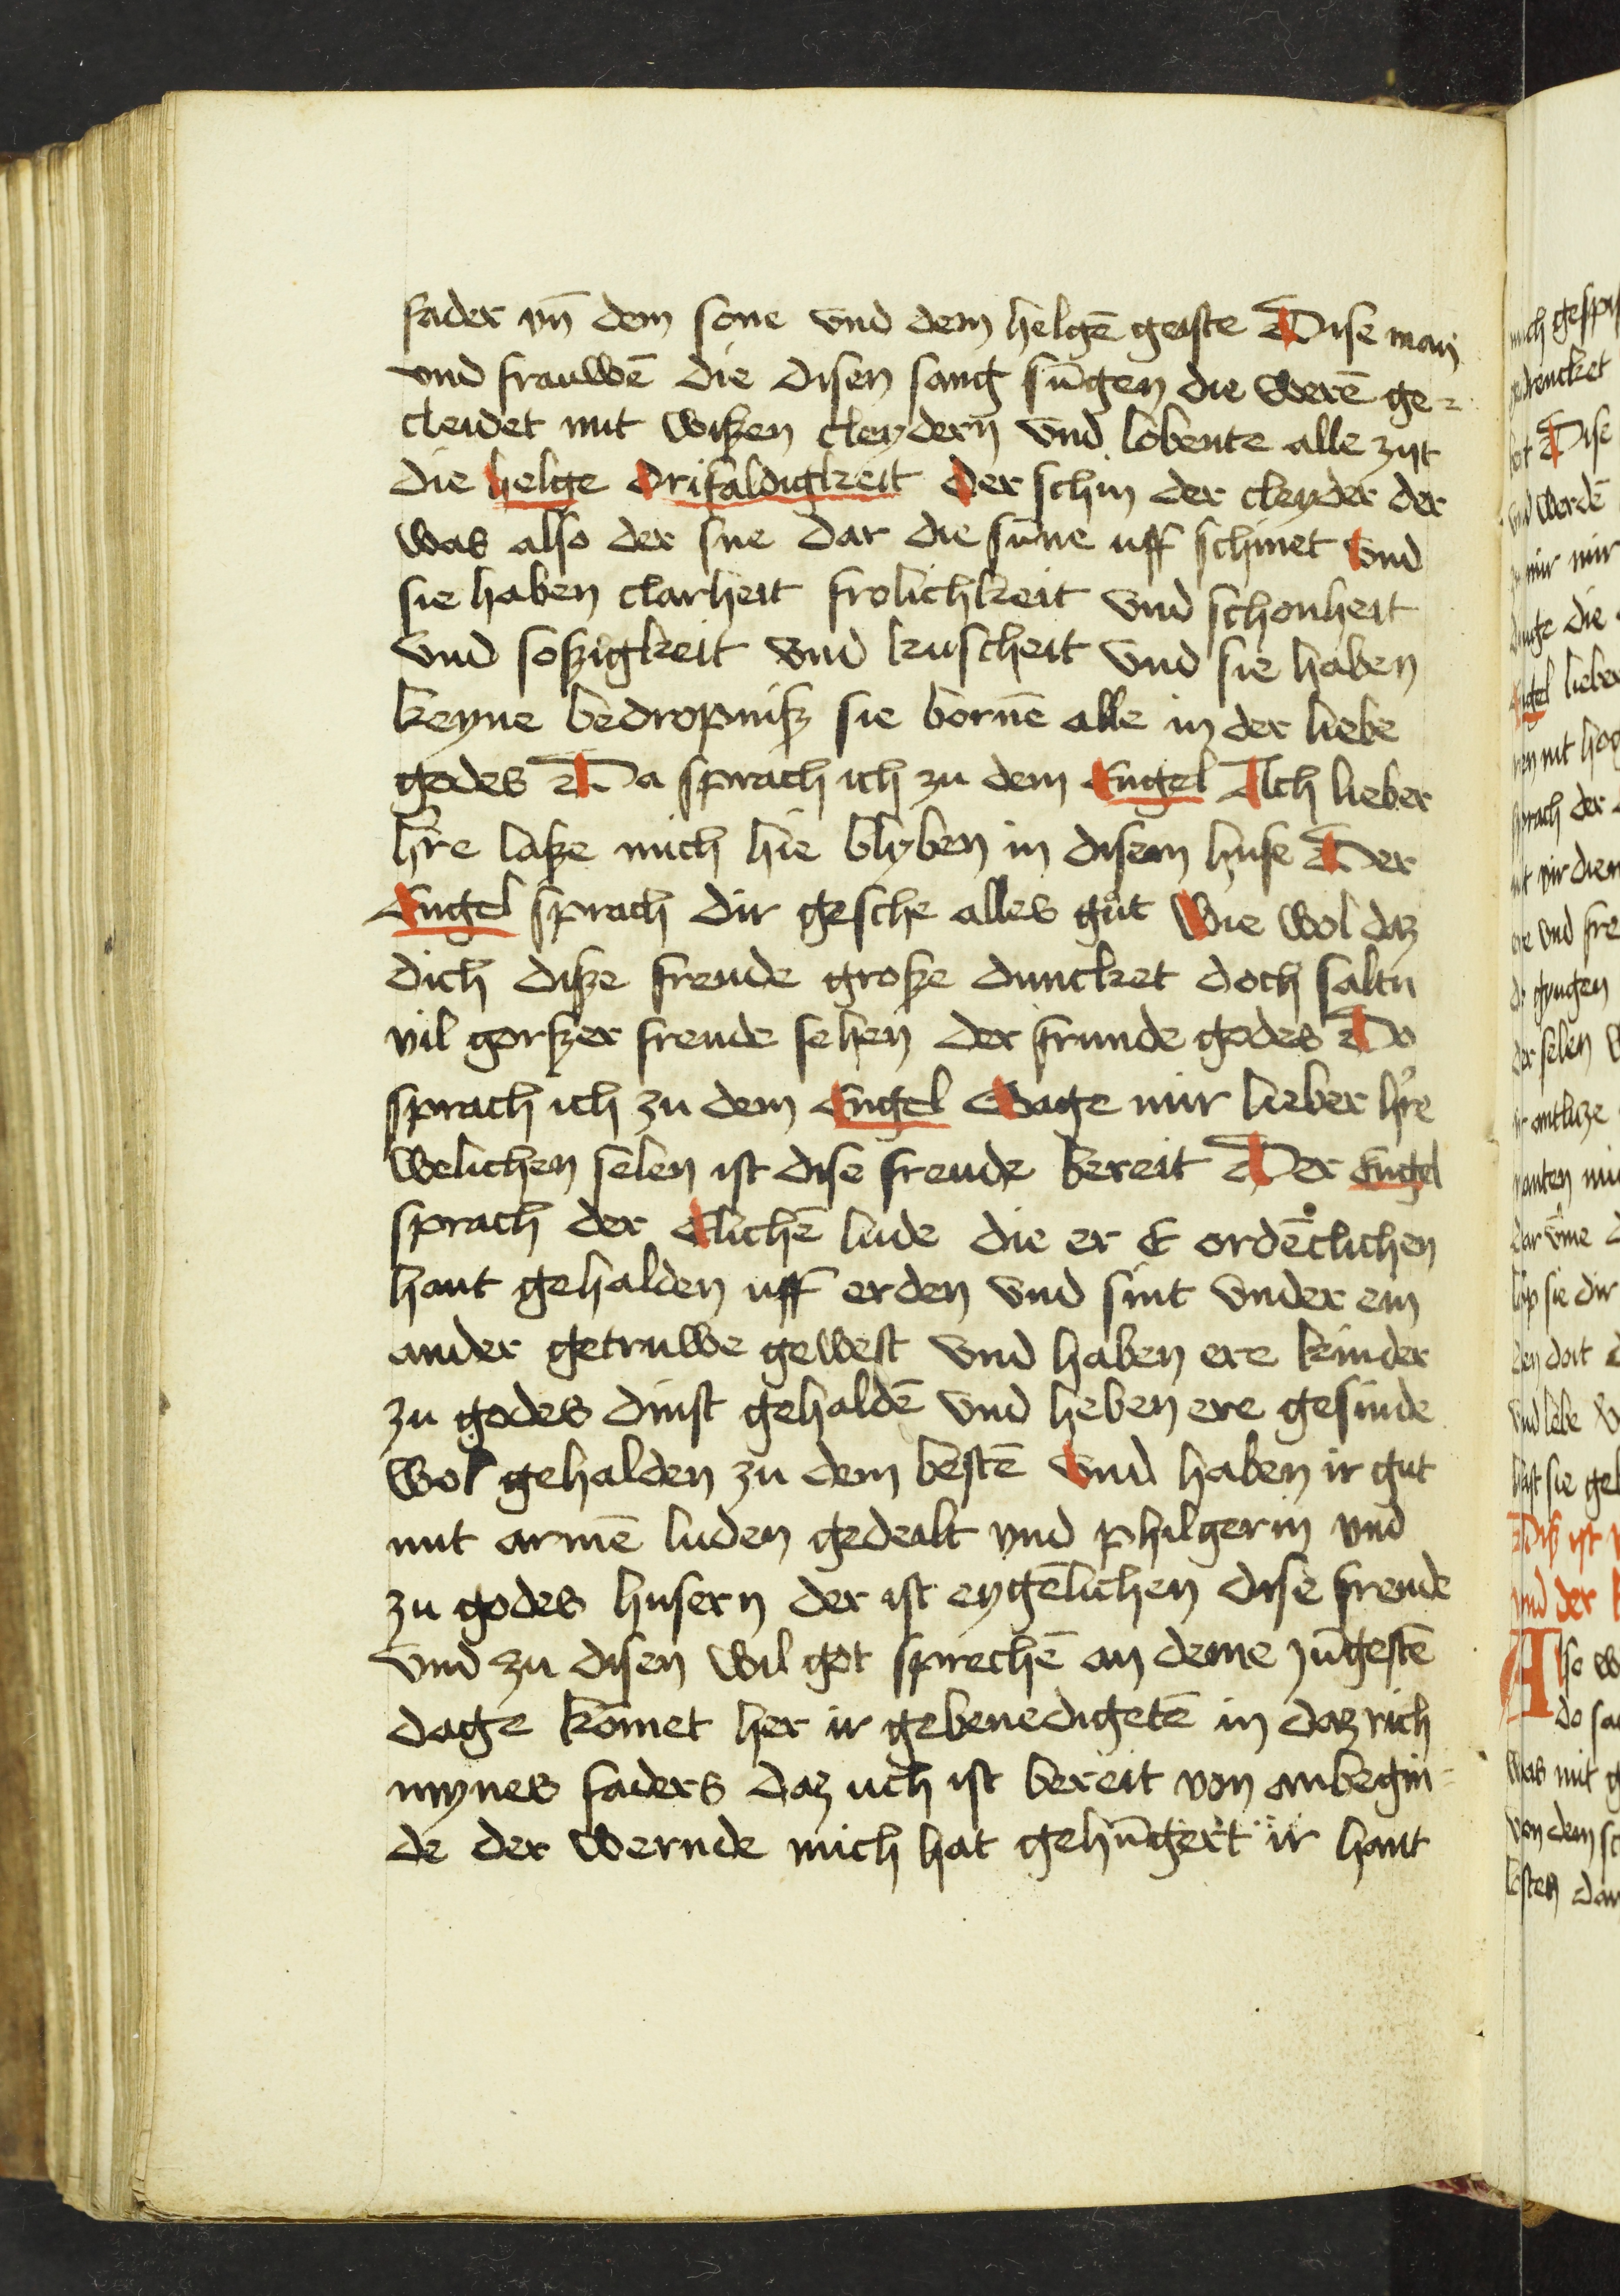 fader vn̄ dem sone vnd dem helgē geiste Dise man
vnd frauwē die disen sang sūgen die werē ge=
cleidet mit wißen cleydern vnd lobente alle zijt
die helge drifaldigkeit der schin der cleyder der
was also der sne dar die sūne uff schinet vnd
sie haben clarheit frolichkeit vnd schonheit
vnd soßigkeit vnd kuscheit vnd sie haben
keyne bedropniß sie bornē alle in der liebe
godes Da sprach ich zu dem Engel Ach lieber
h're laße mich hie blyben in disem huse Der
Engel sprach dir gesche alles gůt wie wol daz
dich diße freude große duncket doch saltu
vil gorßer freude sehen der frunde godes Do
sprach ich zu dem Engel Sage mir lieber h're
welichen selen ist dise freude bereit Der Engel
sprach der Elichē lude die er E ordēclichen
hant gehalden uff erden vnd sint vnder ein
ander getruwe gewest vnd haben ere kinder
zu godes dinst gehaldē vnd heben ere gesinde
wol gehalden zu dem bestē vnd haben ir gut
mit armē luden gedeilt vnd philgerin vnd
zu godes husern der ist eygēlichen dise freude
vnd zu disen wil got sprechē an deme jūgestē
dage kōmet her ir gebenedigetē in daz rich
mynes faders daz uch ist bereit von anbegin=
de der wernde mich hat gehūgert ir hant
mich gesp
gedrencket
Dise
vnd werdē
mir mir
die
Engel lieber
nit hog
sprach der
ere vnd fre
gyngen
der selen w
antlitze
sie dir
vnd lebe
sie gel
Diß ist
vnd der
Also w
do sa
was mit g
von dem sc
dar